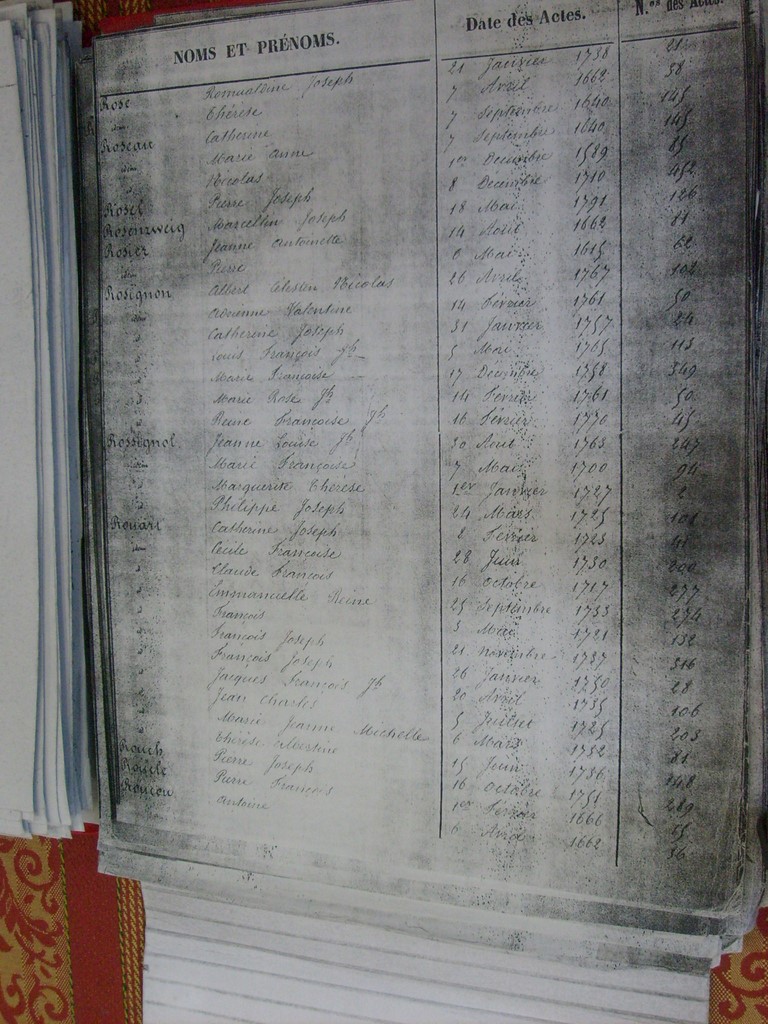 NOMS ET PRÉNOMS. Date des Actes. N.os des Actes.
Rose Romualdine Joseph 21 Janvier 1758 21
idem Thérèse 7 Avril 1662 58
Roseau Catherine 7 Septembre 1640 145
idem Marie Anne 7 Septembre 1640 145
" Nicolas 1er Decembre 1589 85
Rosel Pierre Joseph 8 Decembre 1710 452
Rosenzweig Marcellin Joseph 18 Mai 1791 126
Rosier Jeanne Antoinette 14 Avril 1662 81
idem Pierre 6 Mai 1615 62
Rosignon Albert Célestin Nicolas 26 Avril 1767 102
" Adrienne Valentine 14 Février 1761 50
" Catherine Joseph 31 Janvier 1757 24
" Louis François Jh 5 Mai 1765 113
" Marie Françoise 17 Decembre 1758 349
" Marie Rose Jh 14 Fevrier 1761 50
" Reine Francoise Jh 16 Février 1770 45
Rossignol Jeanne Louise Jh 30 Aout 1763 247
idem Marie Françoise 7 Mai 1700 94
" Marguerite Therese 1er Janvier 1727 2
" Philippe Joseph 24 Mars 1725 101
Rouart Catherine Joseph 2 Fevrier 1723 41
idem Cecile Francoise 28 Juin 1730 200
" Claude François 16 Octobre 1717 277
" Emmanuelle Reine 25 Septembre 1733 274
" François 3 Mai 1721 132
" François Joseph 21 Novembre 1737 316
" François Joseph 26 Janvier 1750 28
" Jacques François Jh 20 Avril 1735 106
" Jean Charles 5 Juillet 1725 203
" Marie Jeanne Michelle 6 Mars 1752 81
" Thérèse Albertine 15 Juin 1736 148
Rouch Pierre Joseph 16 Octobre 1751 289
Roucle Pierre François 1er Fevrier 1666 55
Roucou Antoine 6 Avril 1662 56